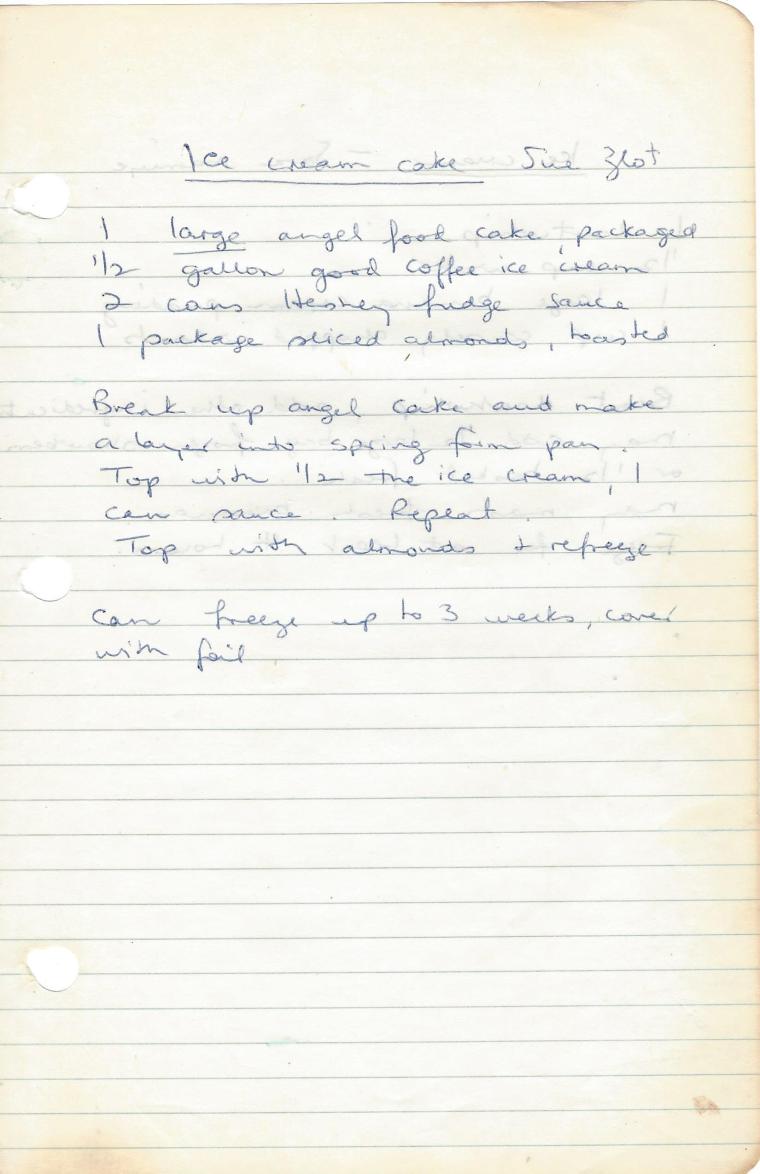 Ice cream cake Sue Zlot
1 large angel food cake, packaged
1/2 gallon good coffee ice cream
2 cans Hershey fudge sauce
1 package sliced almonds, toasted
Break up angel cake and make
a layer into spring form pan.
Top with 1/2 the ice cream, 1
can sauce. Repeat.
Top with almonds + refreeze.
Can freeze up to 3 weeks, cover
with foil